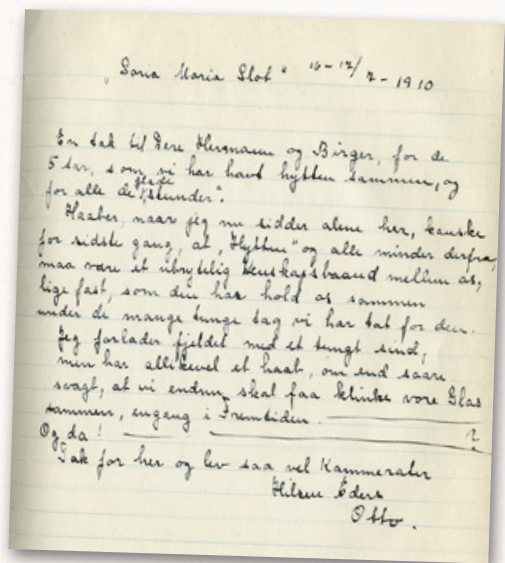 „Soria Maria Slot" 16-17/7-1910
En tak til Dere Hermann og Birger, for de
5 aar, som vi har havt hytten sammen, og
glade
for alle de „stunder".
Haaber, naar jeg nu sidder alene her, kanske
for sidste gang, at „Hytten" og alle minder derfra,
maa være et ubrytelig Venskapsbaand mellem os,
lige fast, som den har hold os sammen
under de mange tunge tag vi har tat for den.
Jeg forlader fjeldet med et tungt sind,
men har allikevel et haab, om end saare
svagt, at vi endnu skal faa klinke vore Glas
sammen, engang i Fremtiden. ?
Og da!
Tak for her og lev saa vel Kammerater
Hilsen Eders
Otto.